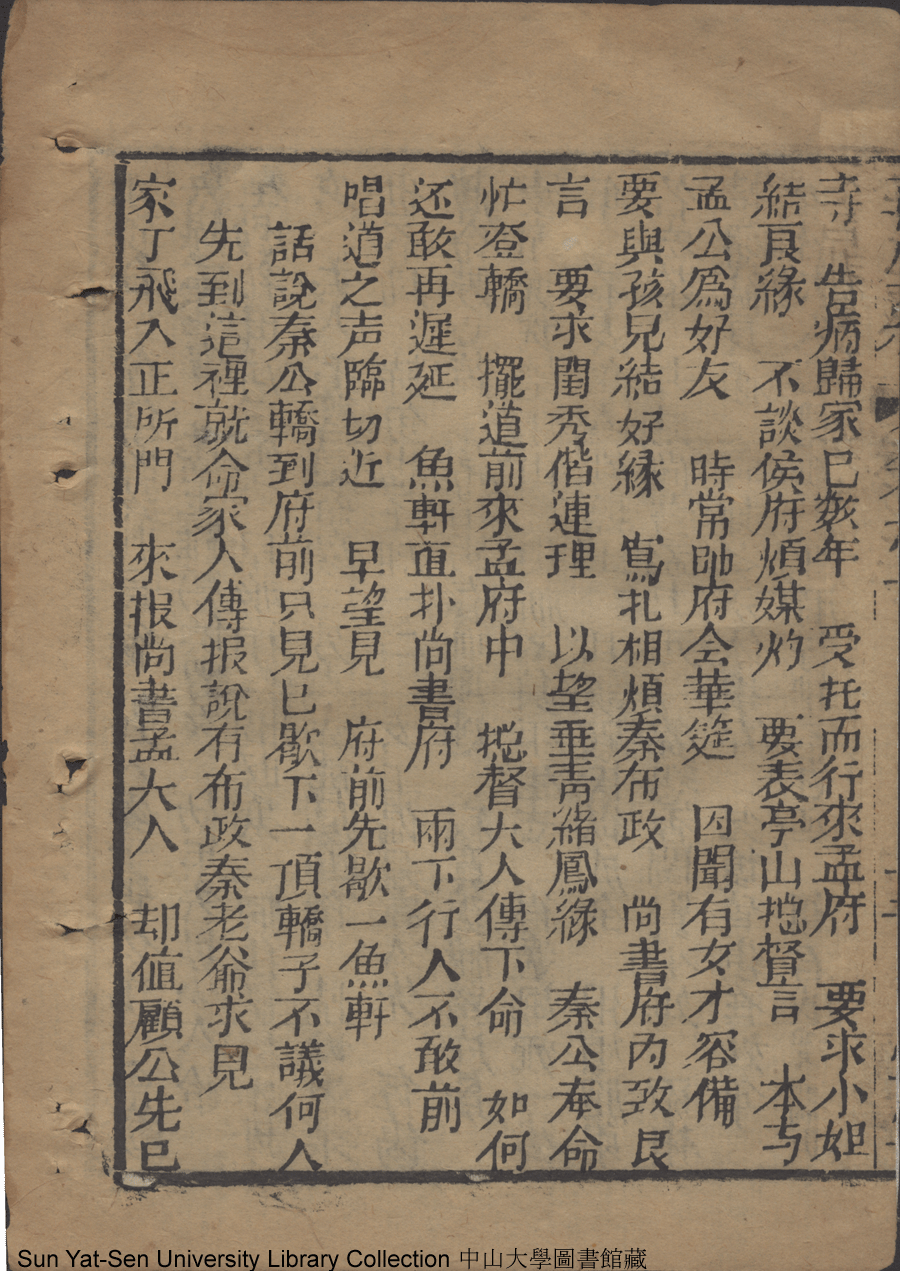 寺　告病歸家已数年　受托而行來孟府　要求小姐
結良緣　不談侯府煩媒灼　要表亭山搃督言　本与
孟公為好友　時常帥府会華筵　因聞有女才容備
要與孩兒結好緣　寫扎相煩秦布政　尚書府內致良
言　要求閨秀偕連理　以望垂青締鳳緣　秦公奉命
忙登轎　擺道前來孟府中　搃督大人傳下命　如何
还敢再遲延　魚軒直扑尚書府　兩下行人不敢前
唱道之声臨切近　早望見　府前先歇一魚軒
話說秦公轎到府前只見已歇下一頂轎子不議何人
先到這裡就命家人傳报說有布政秦老爺求見
家丁飛入正所門　來报尚書孟大人　却值顧公先已
Sun Yat-Sen University Library Collection 中山大學圖書館藏